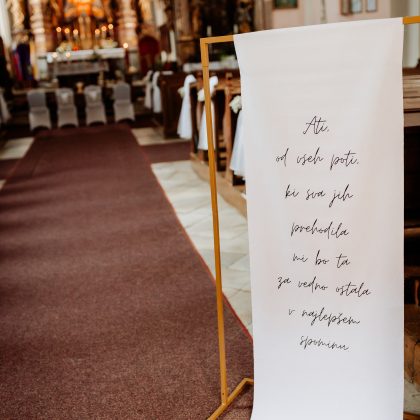 Ati,
od vseh poti,
ki sva jih
prehodila
mi bo ta
za vedno ostala
v najlepšem
spominu